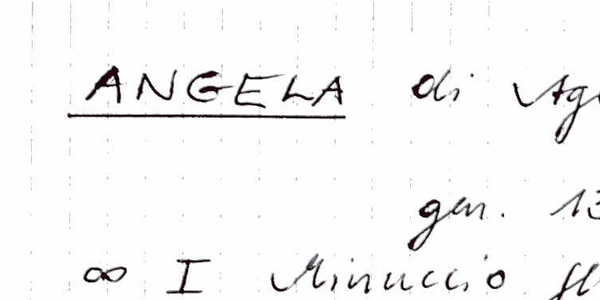 ANGELA di
gen. 13
∞ I Minuccio